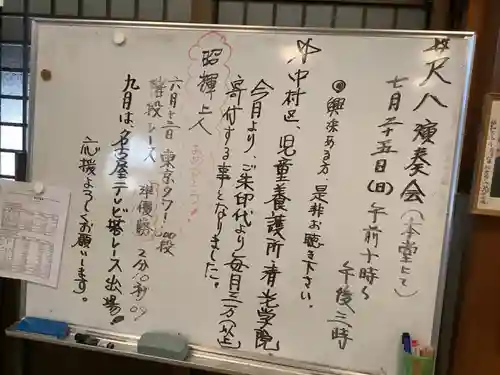 尺八演奏会(本堂にて)
七月二十五日(日)午前十時〜
午後三時
◎興味ある方、是非お聴き下さい。
中村区、児童養護所・清光学院
今月より、ご朱印代より毎月三万(以上)
寄付する事となりました。
昭輝上人
おめでとう
六月十三日 東京タワー600段
階段レース 準優勝 2分10秒09
九月は名古屋テレビ塔レース出場!
応援よろしくお願いします。